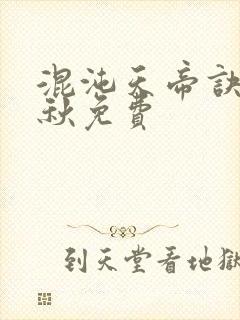 混沌天帝訣
秋免費
到天堂看地獄